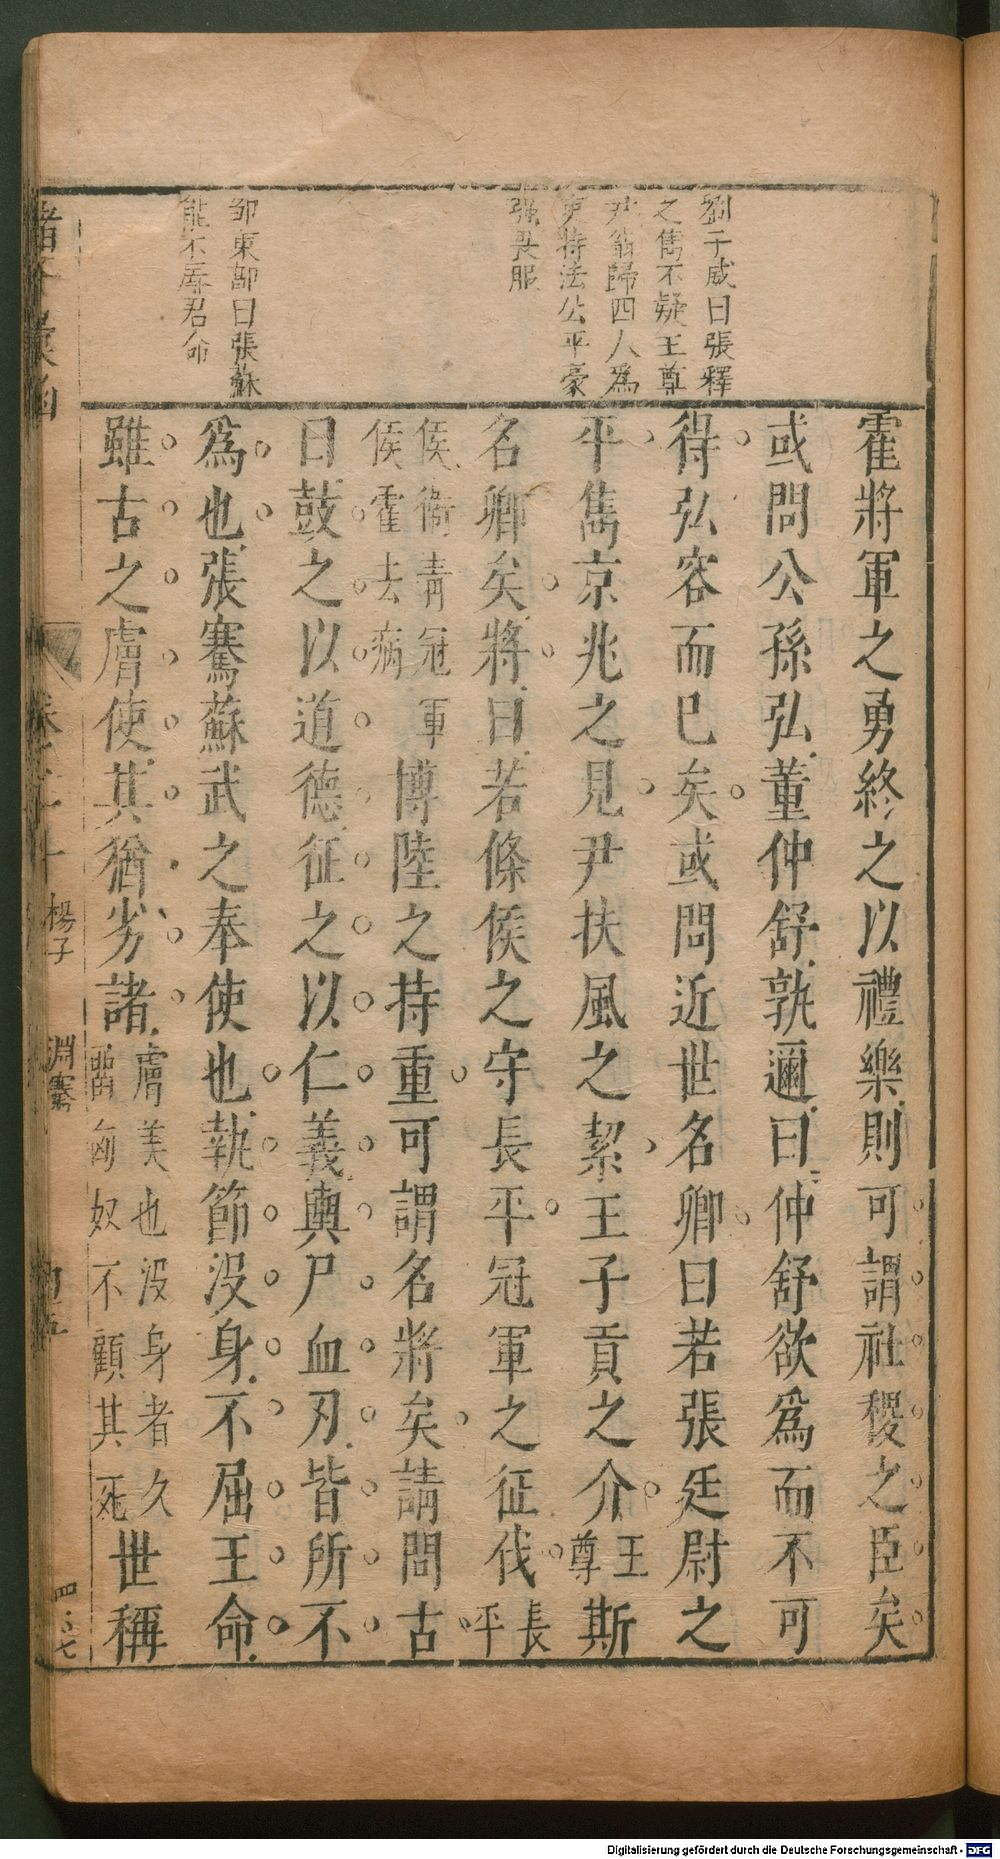 劉子威曰張釋
之雋不疑王尊
尹翁歸四人爲
吏持法公平豪
强畏服
鄒東郭曰張蘇
能不辱君命
霍將軍之勇終之以禮樂則可謂社稷之臣矣
或問公孫弘董仲舒孰邇曰仲舒欲爲而不可
得弘容而已矣或問近世名卿曰若張廷尉之
平雋京兆之見尹扶風之絜王子貢之介王尊斯
名卿矣將曰若條侯之守長平冠軍之征伐長平
侯衛青冠軍侯霍去病博陸之持重可謂名將矣請問古
曰鼓之以道德征之以仁義輿尸血刃皆所不
爲也張騫蘇武之奉使也執節没身不屈王命
雖古之膚使其猶劣諸膚美也没身者久留匈奴不顧其死世稱
楊子
淵騫
四〻七
Digitalisierung gefördert durch die Deutsche Forschungsgemeinschaft - DFG